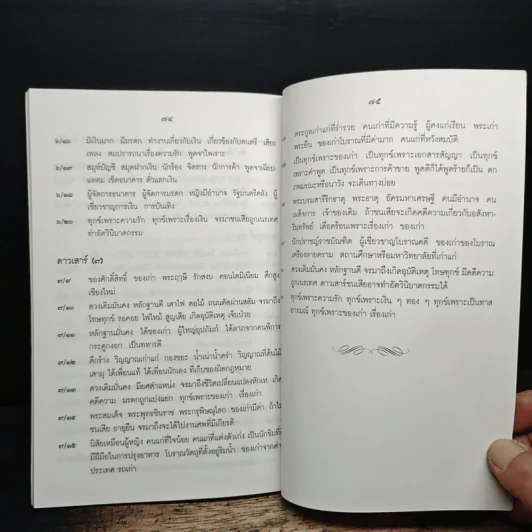 ๗๔
๖/๑๖ มีเงินมาก มีมรดก ทำงานเกี่ยวกับเงิน เกี่ยวข้องกับดนตรี เสียง
เพลง สมปรารถนาเรื่องความรัก พูดจาไพเราะ
๖/๑๗ สมุห์บัญชี สมุดฝากเงิน นักร้อง จิตรกร นักการค้า พูดจาเฉียบ
แหลม เชิดธนาคาร ตัวแลกเงิน
๖/๑๘ ผู้จัดการธนาคาร ผู้จัดการมรดก หญิงมีอำนาจ รัฐมนตรีคลัง ผู้
เชี่ยวชาญการเงิน การบันเทิง
๖/๒๐ ทุกข์เพราะความรัก ทุกข์เพราะเรื่องเงิน จรมาชนเสียถูกเนรเทศ
ทำอัตวินิบาตกรรม
ดาวเสาร์ (๗)
๗/๙ ของศักดิ์สิทธิ์ ของเก่า พระฤๅษี รักสงบ คอนโดมิเนียม ตึกสูง
เชียงใหม่
๗/๑๐ ดวงเดิมมั่นคง หลักฐานดี เสาไฟ ตอไม้ ถนนตัดผ่านสลัม จรมาถึง
โทษทุกข์ รอคอย ไฟไหม้ สูญเสีย เกิดอุบัติเหตุ เจ็บป่วย
๗/๑๑ หลักฐานมั่นคง ได้ของเก่า ผู้ใหญ่อุปถัมภ์ ได้ลาภจากคนพิการ
กระดูกงอก เป็นทหารดี
๗/๑๒ ตึกร้าง วิญญาณเก่าแก่ กองขยะ น้ำเน่าน้ำครำ วิญญาณที่ต้นไม้
เสาผุ ได้เพื่อนแท้ ได้เพื่อนนักเลง ที่เก็บของผิดกฎหมาย
๗/๑๓ ดวงเดิมมั่นคง มียศตำแหน่ง จรมาถึงชีวิตเปลี่ยนแปลงหักเห เกิด
คดีความ มรดกถูกแบ่งแยก ทุกข์เพราะของเก่า เรื่องเก่า
๗/๑๔ พระสมเด็จ พระพุทธชินราช พระกรุพิษณุโลก ของเก่ามีค่า ถ้าไม่
ชนเสีย อายุยืน จรมาถึงจะได้ไปงานศพที่มีเกียรติ
๗/๑๕ นิสัยเหมือนผู้หญิง คนแก่ที่ใจน้อย คนแก่ที่แต่งตัวเก่ง เป็นนักชิมที่
มีฝีมือในการปรุงอาหาร โบราณวัตถุที่ตั้งอยู่ริมน้ำ ของเก่าจากต่าง
ประเทศ รถเก่า
๗๕
ตระกูลเก่าแก่ที่ร่ำรวย คนเก่าที่มีความรู้ ผู้คงแก่เรียน พระเก่า
พระยืน ของเก่าโบราณที่มีค่ามาก คนแก่ที่หวังสมบัติ
เป็นทุกข์เพราะของเก่า เป็นทุกข์เพราะเอกสารสัญญา เป็นทุกข์
เพราะคำพูด เป็นทุกข์เพราะการค้าขาย พูดดีก็ได้พูดร้ายก็เป็น ตก
จะเดินทางบ่อย
พระบรมสารีริกธาตุ พระธาตุ อัครมหาเศรษฐี คนมีอำนาจ คน
เผด็จการ เจ้าของเดิม ถ้าชนเสียจะเกิดคดีความเกี่ยวกับอสังหา-
ริมทรัพย์ เดือดร้อนเพราะเรื่องเก่า ของเก่า
นักปราชญ์ราชบัณฑิต ผู้เชี่ยวชาญโบราณคดี ของเก่าของโบราณ
เครื่องลายคราม สถานศึกษาหรือมหาวิทยาลัยที่เก่าแก่
ดวงเดิมมั่นคง หลักฐานดี จรมาถึงเกิดอุบัติเหตุ โทษทุกข์ มีคดีความ
ถูกเนรเทศ ดาวเสาร์ชนเสียอาจทำอัตวินิบาตกรรมได้
ทุกข์เพราะความรัก ทุกข์เพราะเงิน ๆ ทอง ๆ ทุกข์เพราะเป็นทาส
อารมณ์ ทุกข์เพราะของเก่า เรื่องเก่า